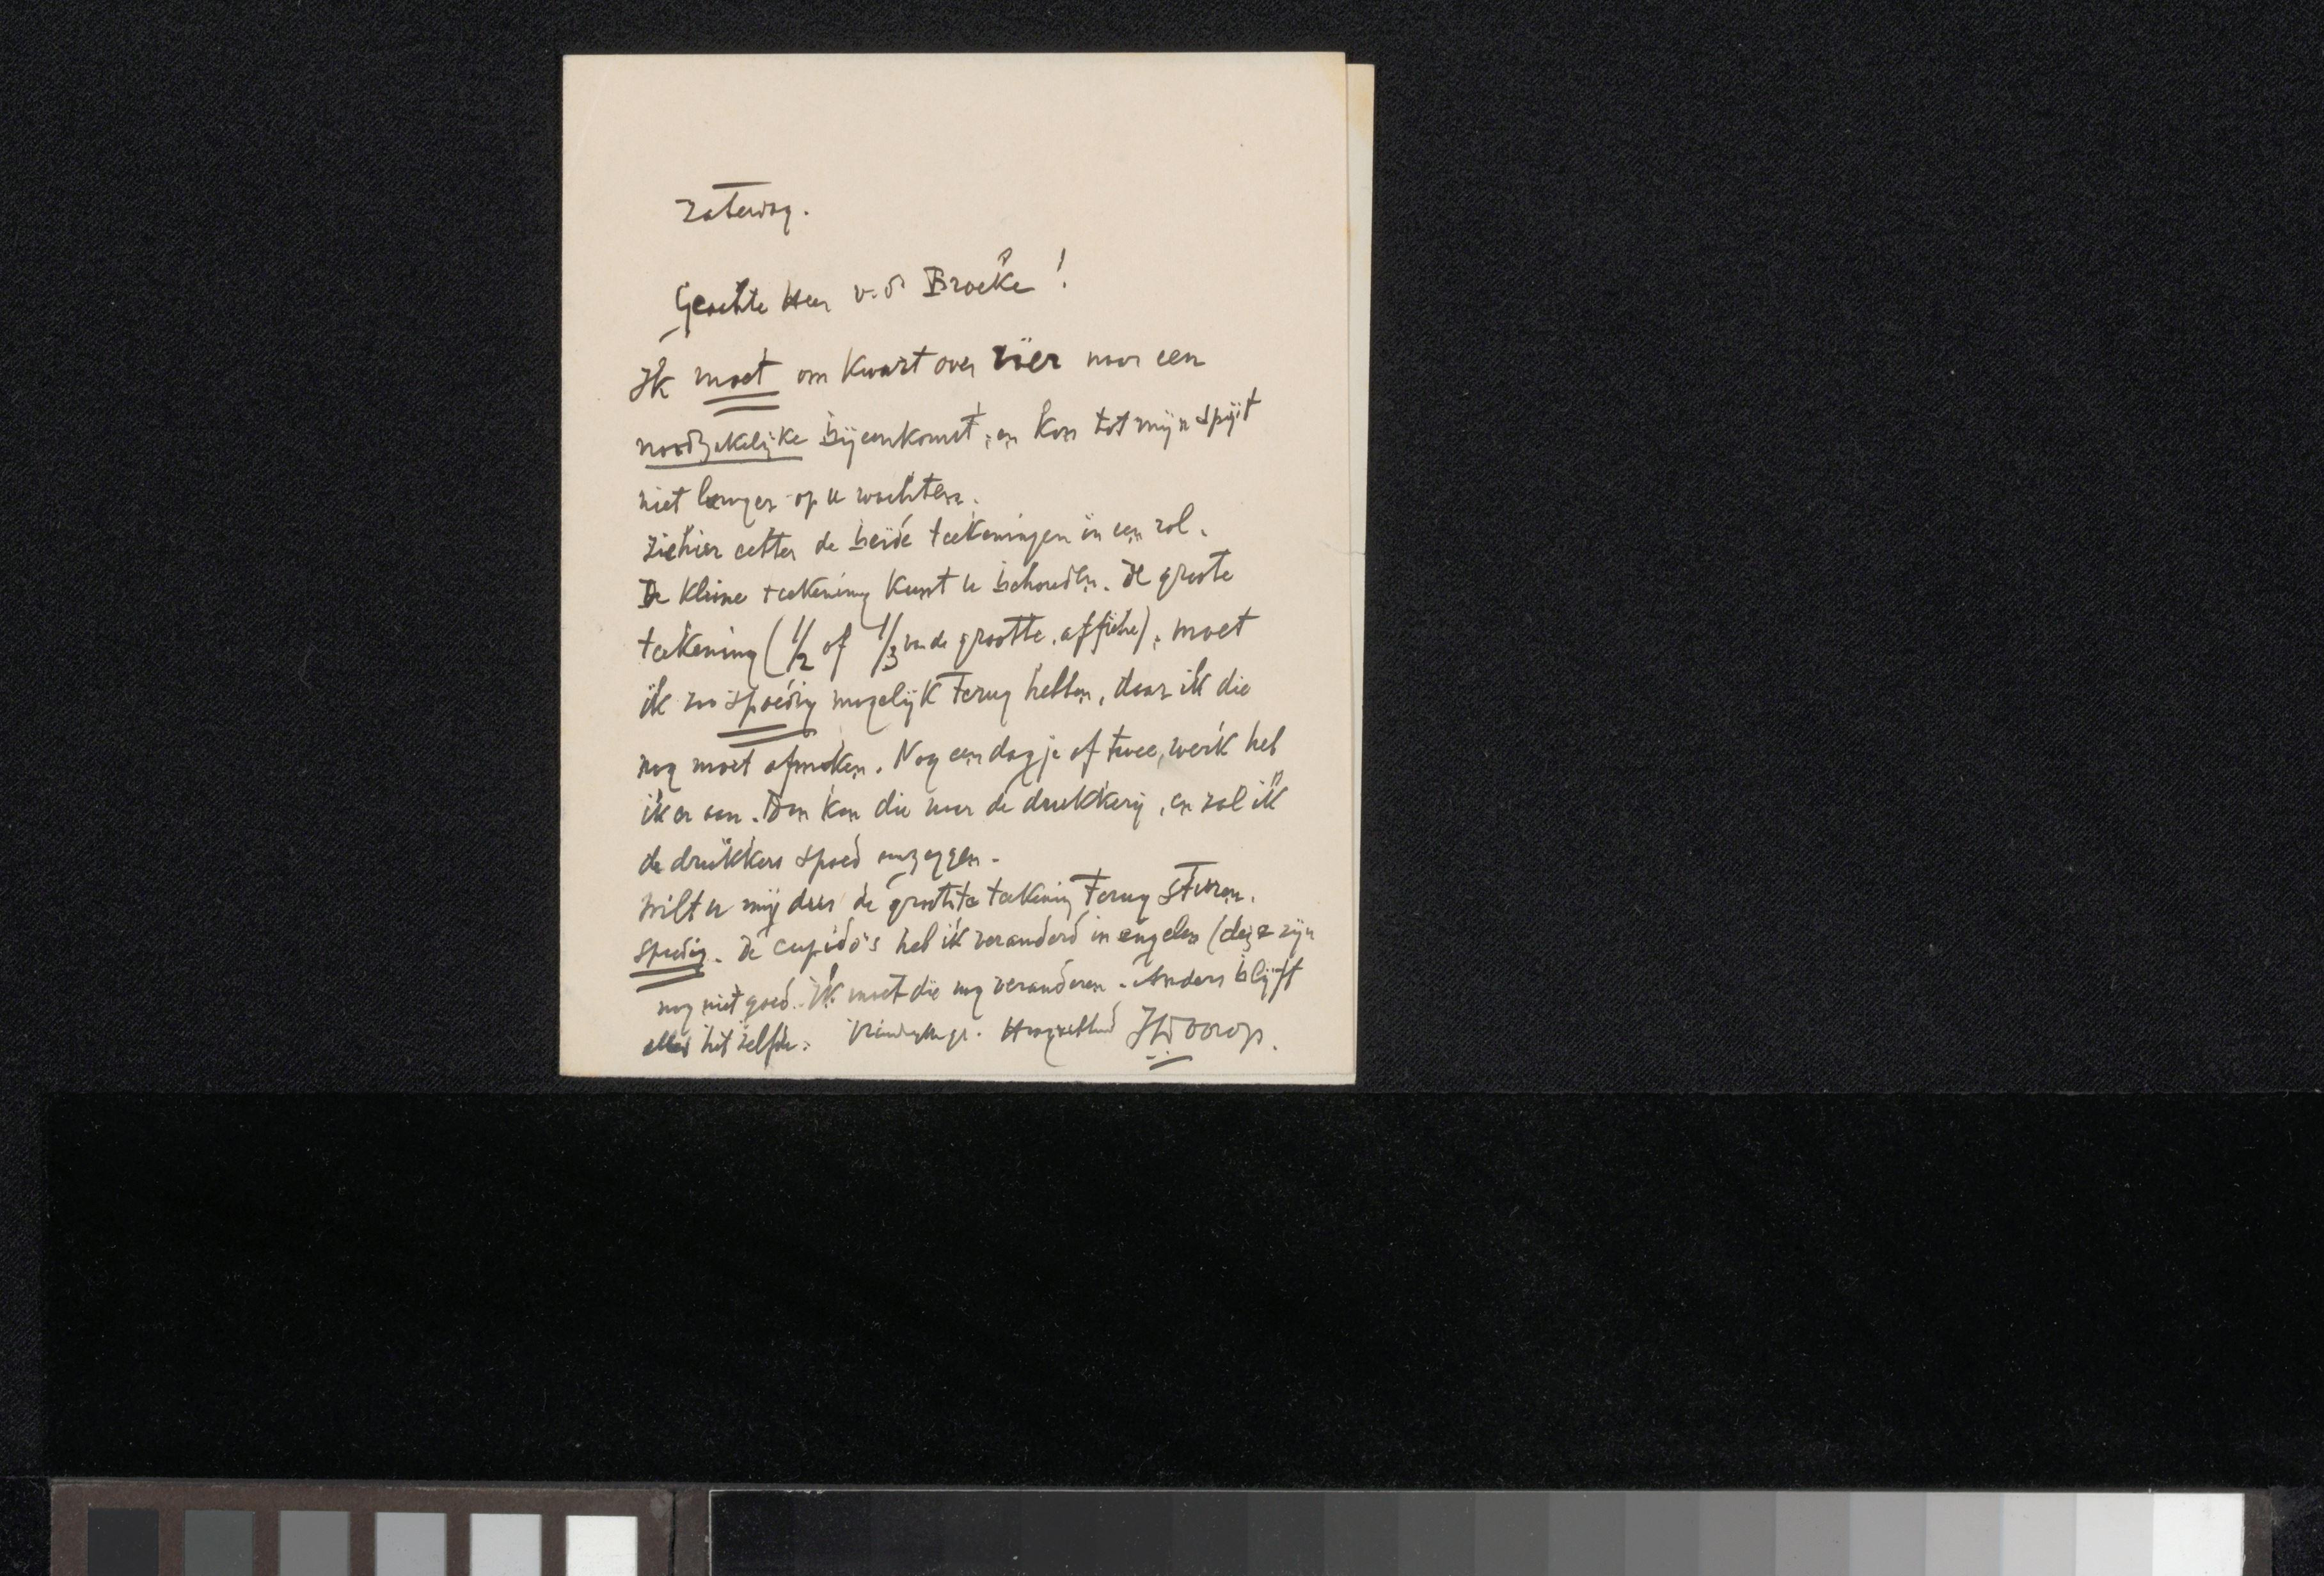 Zaterdag.
Geachte Heer v.d Broeke!
Ik moet om kwart over vier naar een
noodzakelijke bijeenkomst, en kon tot mijn spijt
niet langer op u wachten.
Ziehier echter de beide teekeningen in een rol.
De kleine teekening kunt u behouden. De groote
teekening (1/2 of 1/3 van de grootte affiche), moet
ik zoo spoedig mogelijk terug hebben, daar ik die
nog moet afmaken. Nog een dagje of twee, werk heb
ik er aan. Dan kan die naar de drukkerij, en zal ik
de drukkers spoed aanzeggen.
Wilt u mij dus de grootste teekening terug sturen.
spoedig. De cupido's heb ik veranderd in engelen (deze zijn
nog niet goed. Ik moet die nog veranderen. Anders blijft
alles het zelfde. Hoogachtend JthToorop.